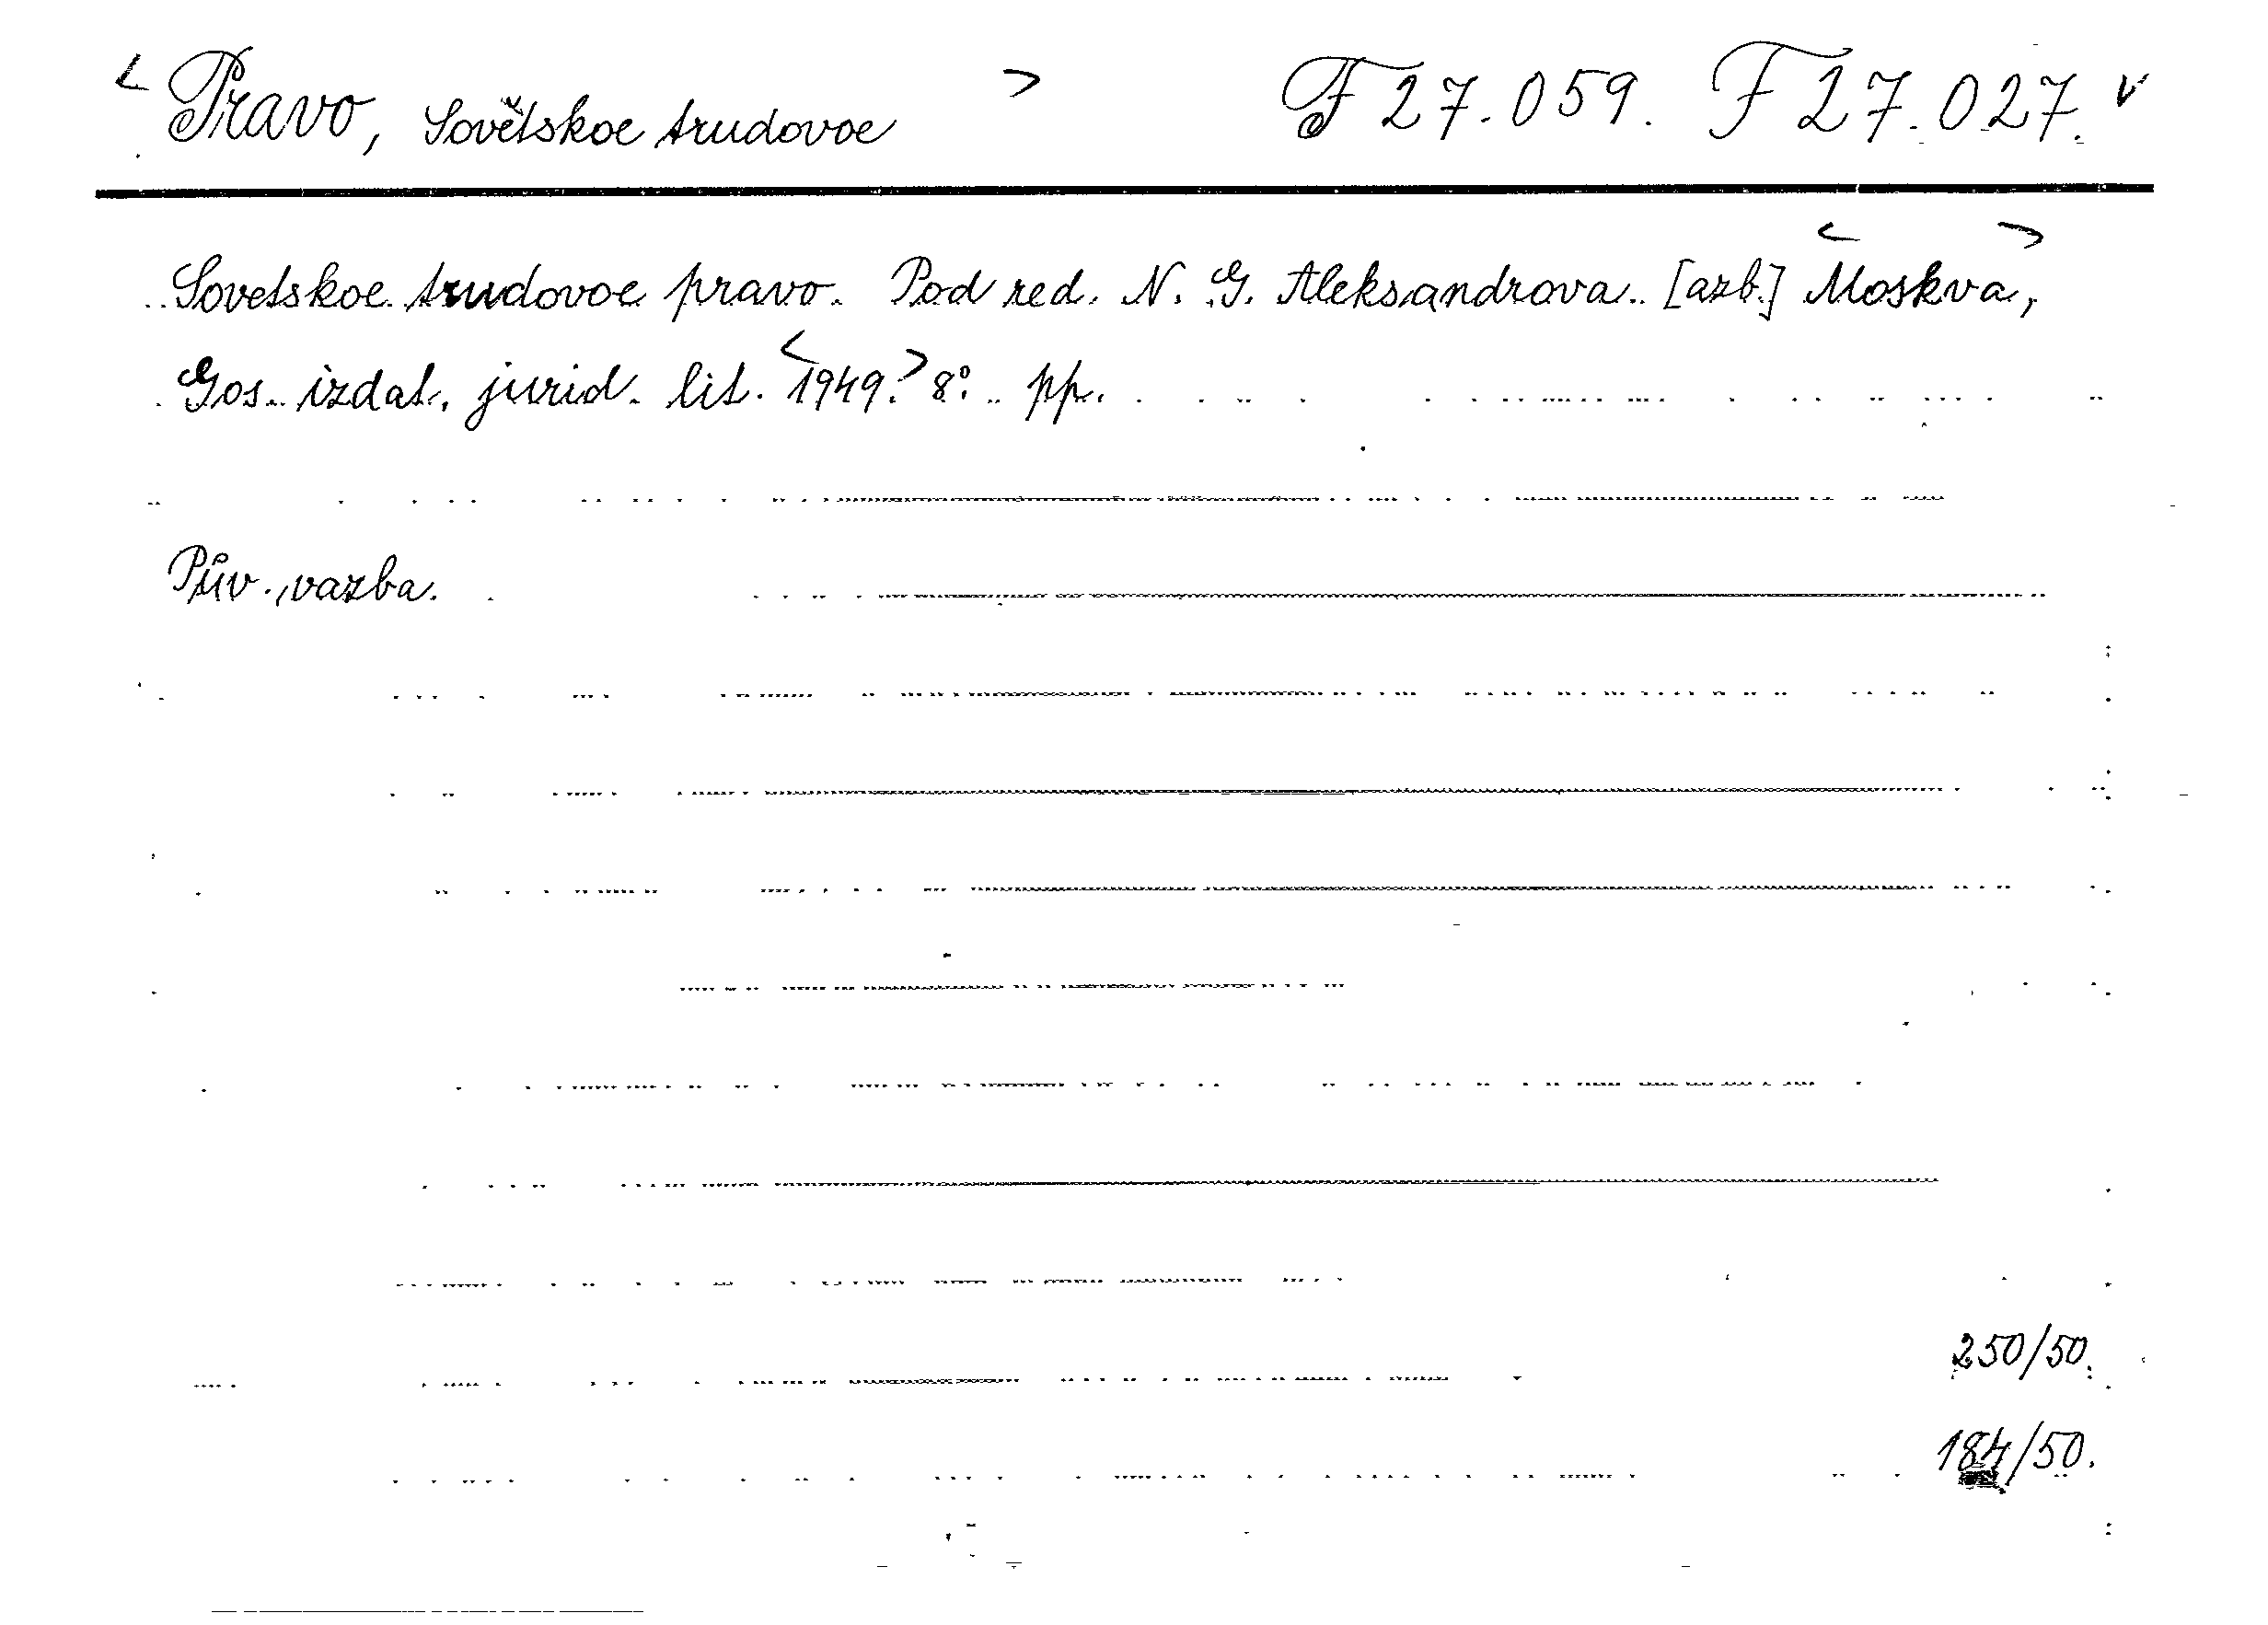 < Pravo, Sovětskoe trudovoe > F 27.059. F 27.027. v
Sovetskoe trudovoe pravo. Pod red. N. G. Aleksandrova. [azb.] <Moskva>,
Gos. izdat. jurid. lit. <1949.> 8°. pp.
Pův. vazba.
250/50.
184/50.